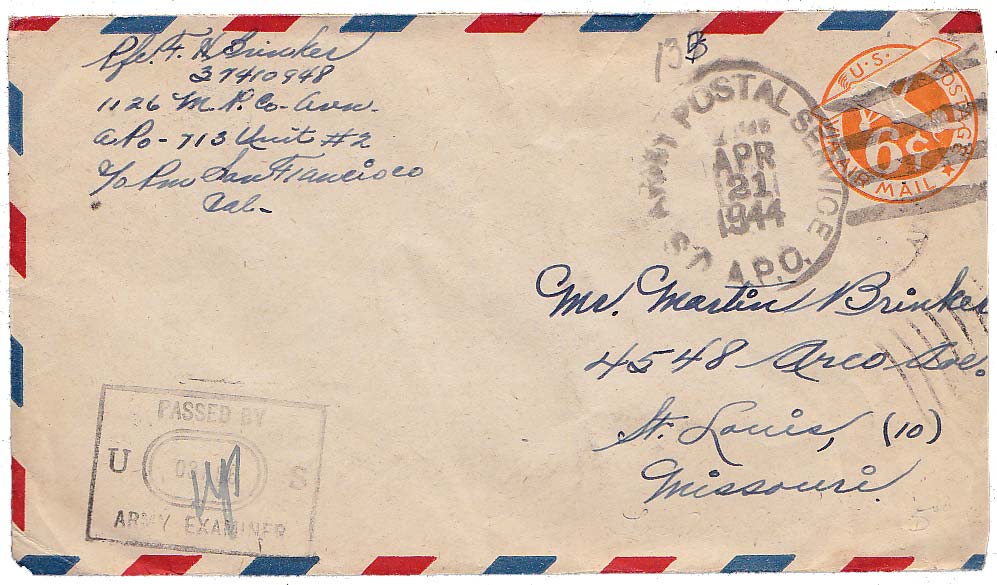 Pfc. F. H. Brinker
37410948
1126 M. P. Co. Avn.
A.P.O - 713 Unit #2
c/o Pm San Francisco
Cal-
13B
U.S. ARMY POSTAL SERVICE
APR
21
1944
A.P.O.
U.S. POSTAGE
6¢
VIA AIR MAIL
Mr. Martin Brinker
4548 Arco Ave.
St. Louis, (10)
Missouri.
PASSED BY
U S
ARMY EXAMINER